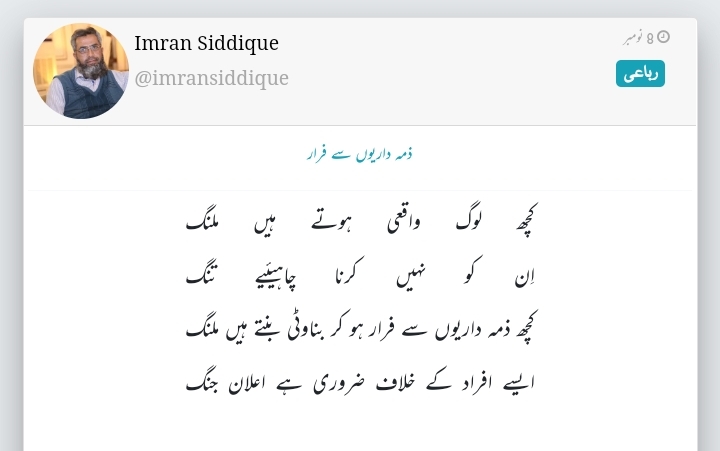 Imran Siddique
@imransiddique
8 نومبر
رباعی
ذمہ داریوں سے فرار
کچھ لوگ واقعی ہوتے ہیں ملنگ
اِن کو نہیں کرنا چاہیئیے تنگ
کچھ ذمہ داریوں سے فرار ہو کر بناوٹی بنتے ہیں ملنگ
ایسے افراد کے خلاف ضروری ہے اعلان جنگ